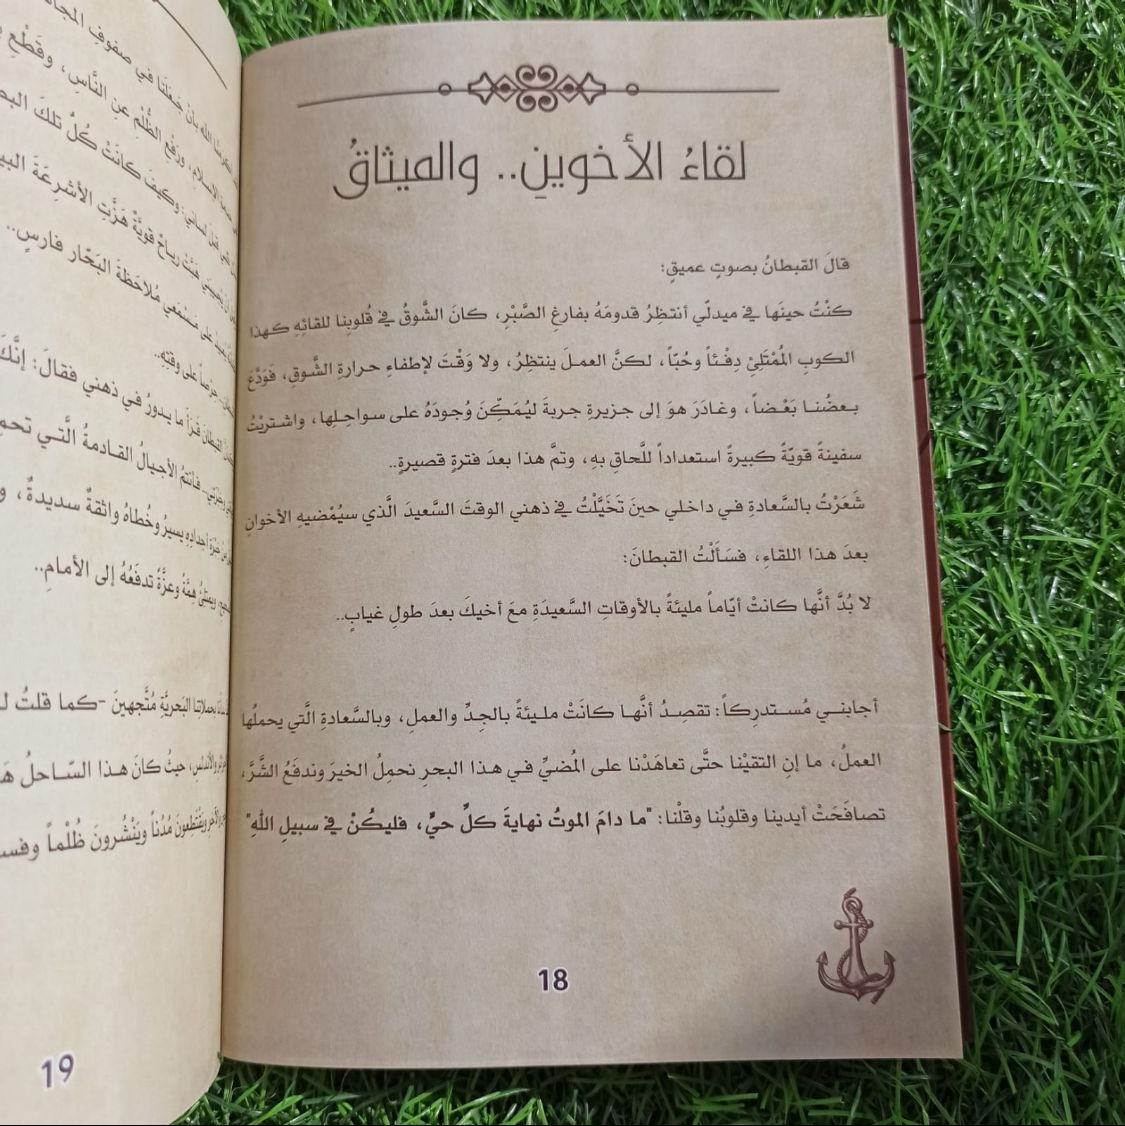 لقاءُ الأخوينِ.. والميثاقُ
قالَ القبطانُ بصوتٍ عميقٍ:
كنْتُ حينَها في ميدلّي أنتظِرُ قدومَهُ بفارغِ الصَّبْرِ، كانَ الشَّوقُ في قُلوبِنا للقائِهِ كهذا
الكوبِ المُمْتَلِئِ دِفْئاً وحُبّاً، لكنَّ العملَ ينتظرُ، ولا وَقْتَ لإطفاءِ حرارةِ الشَّوقِ، فَوَدَّعَ
بعضُنا بَعْضاً، وغادَرَ هوَ إلى جزيرةِ جربةَ ليُمَكِّنَ وُجودَهُ على سواحِلِها، واشتريْتُ
سفينةً قويّةً كبيرةً استعداداً للَّحاقِ بهِ، وتمَّ هذا بعدَ فترةٍ قصيرةٍ..
شَعَرْتُ بالسَّعادةِ في داخلي حينَ تَخَيَّلْتُ في ذهني الوقتَ السَّعيدَ الَّذي سيُمْضيهِ الأخوانِ
بعدَ هذا اللقاءِ، فسَأَلْتُ القبطانَ:
لا بُدَّ أنَّها كانتْ أيّاماً مليئةً بالأوقاتِ السَّعيدَةِ معَ أخيكَ بعدَ طولِ غيابٍ..
أجابني مُستدرِكاً: تقصِدُ أنَّها كانَتْ مليئةً بالجِدِّ والعملِ، وبالسَّعادةِ الَّتي يحملُها
العملُ، ما إنِ التقيْنا حتَّى تعاهَدْنا على المُضيِّ في هذا البحرِ نحمِلُ الخيرَ وندفَعُ الشَّرَّ،
تصافَحَتْ أيدينا وقلوبُنا وقلْنا: "ما دامَ الموتُ نهايةَ كلِّ حيٍّ، فليكُنْ في سبيلِ اللهِ"
18
في صفوفِ
الله بأنْ جَعَلَنا
ورَفْعِ الظُّلْمِ عنِ النَّاسِ، وقَطْعِ
وكيفَ كانَتْ كُلُّ تلكَ
هَبَّتْ رياحٌ قويَّةٌ هَزَّتِ الأشرِعَةَ
على مَسْمَعي مُلاحَظَةَ البَحّارِ فارسٍ..
حِرْصاً على وقتِهِ..
القبطانَ قَرَأَ ما يدورُ في ذهني فقالَ: إنَّكَ
فأنتمُ الأجيالُ القادمةُ الَّتي
أجدادِهِ يسيرُ وخُطاهُ واثقةٌ سديدةٌ،
ويمتلئُ هِمَّةً وعزَّةً تدفَعُهُ إلى الأمامِ..
بحملاتِنا البَحريَّةِ مُتَّجهينَ -كما قلتُ
والأندلسِ، حيثُ كانَ هذا السّاحلُ
ويَقْتَطِعونَ مُدُناً ويَنْشُرونَ ظُلْماً
19